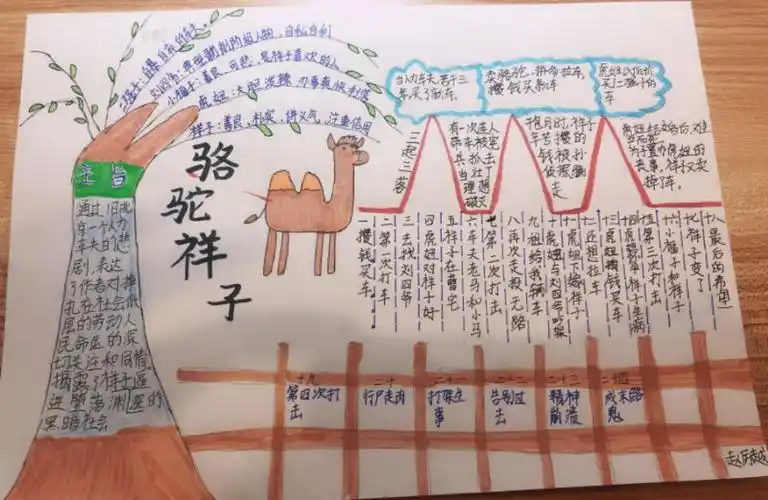 二强子:自暴自弃的车夫
刘四爷:典型剥削阶级人物,自私自利
小福子:善良,可悲,是祥子喜欢的人
虎妞:大胆泼辣,办事爽快利落
祥子:善良,朴实,讲义气,注重信用
主旨
通过旧北
京一个人力
车夫的悲
剧,表达
了作者对挣
扎在社会低
层的劳动人
民命运的深
切关注和同情,
揭露了祥子逐
进堕落渊里的
黑暗社会
骆驼祥子
人力车夫苦干三
年买了新车。
卖骆驼,拼命拉车,
攒钱买新车
虎妞以低价
买二强子的
车
三起三落
有一次连人
带车被宪
兵抓去
当壮丁
理想
破灭
祥子
为了置办虎妞的
丧事,祥子又卖
掉了车。
一攒钱买车
二第一次打车
三去找刘四爷
四虎妞对祥子好
五祥子在曹宅
六车夫老马和小马
七第二次打击
八再次走投无路
九祖给我辆车
十虎妞与刘四爷吵架
十一虎妞下嫁祥子
十二还想拉车
十三虎妞掏钱买车
十五第三次打击
十六小福子和祥子
十七祥子变了
十八最后的希望
十九
第四次打
击
二十
行尸走肉
二十一
打架生
事
二十二
告别过
去
二十三
精神
崩溃
成末路
鬼